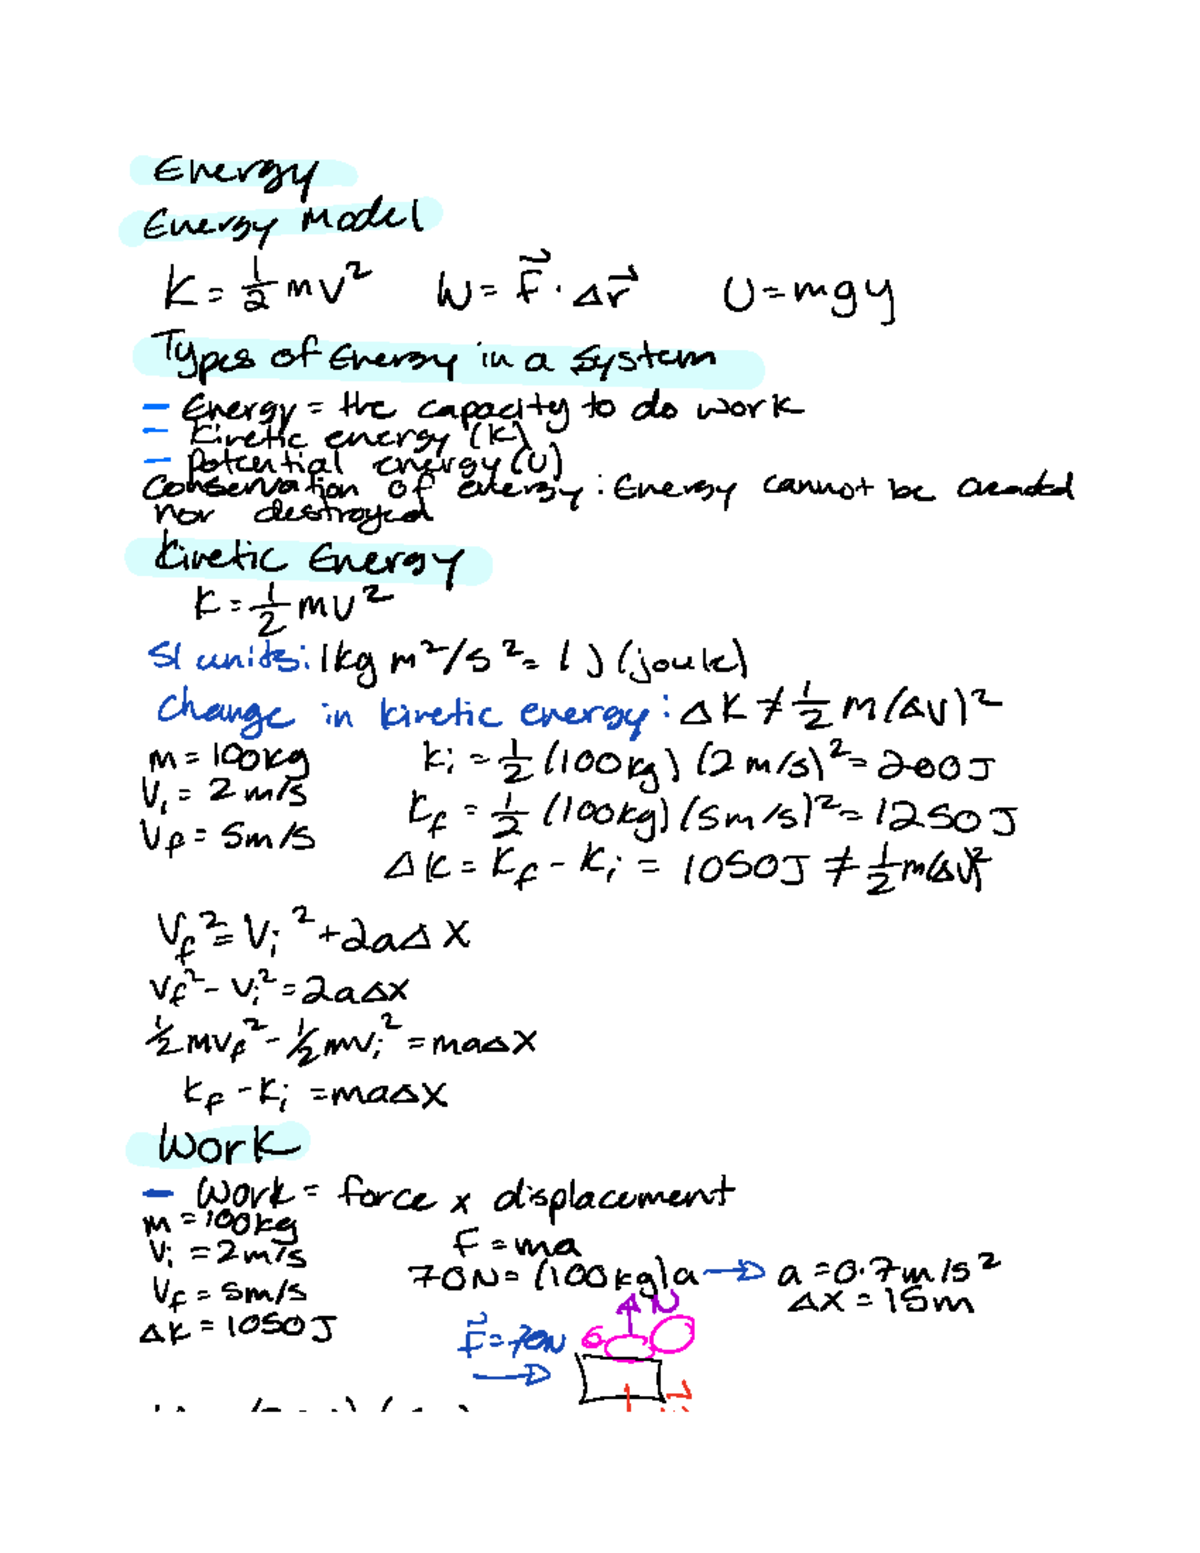 Energy
Energy Model
K = ½ mv²   W = F⃗ · Δr⃗   U = mgy
Types of Energy in a System
– Energy = the capacity to do work
– Kinetic energy (K)
– Potential energy (U)
Conservation of energy: Energy cannot be created
nor destroyed
Kinetic Energy
K = ½ mv²
SI units: 1 kg m²/s² = 1 J (joule)
Change in kinetic energy: ΔK ≠ ½ m(Δv)²
m = 100kg   Ki = ½ (100kg) (2 m/s)² = 200J
Vi = 2 m/s   Kf = ½ (100kg) (5m/s)² = 1250J
Vf = 5m/s   ΔK = Kf - Ki = 1050J ≠ ½ m(Δv)²
Vf² = Vi² + 2aΔX
Vf² - Vi² = 2aΔX
½ mvf² - ½ mvi² = maΔX
Kf - Ki = maΔX
Work
– Work = force x displacement
m = 100kg   F = ma
Vi = 2m/s   70N = (100kg)a → a = 0.7m/s²
Vf = 5m/s   ΔX = 15m
ΔK = 1050J   F⃗ = 70N   N